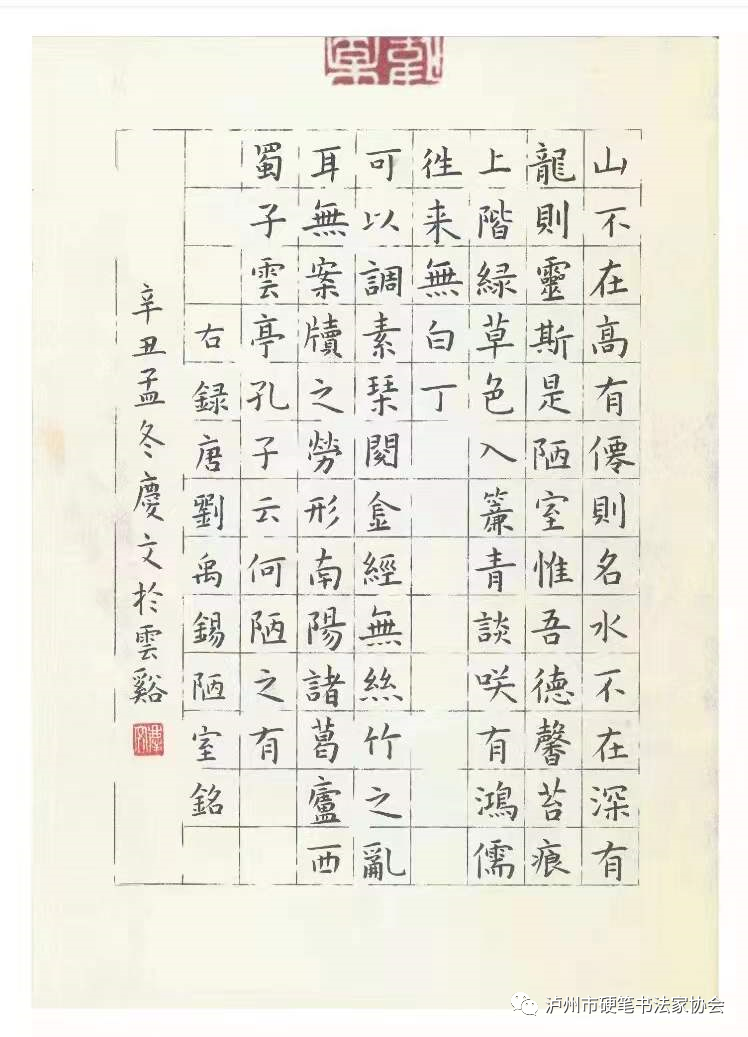 山不在高有僊則名水不在深有
龍則靈斯是陋室惟吾德馨苔痕
上階緑草色入簾青談咲有鴻儒
徃来無白丁
可以調素琹閱金經無絲竹之亂
耳無案牘之勞形南陽諸葛廬西
蜀子雲亭孔子云何陋之有
右録唐劉禹錫陋室銘
辛丑孟冬慶文於雲谿
泸州市硬笔书法家协会